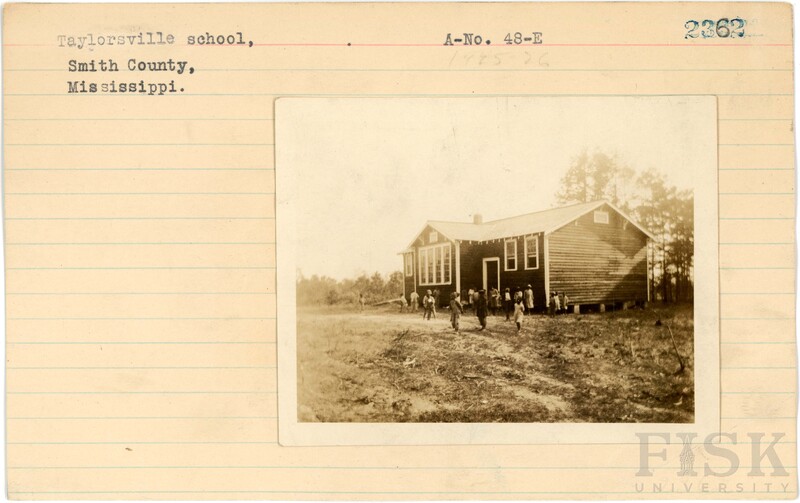 Taylorsville school, A-No. 48-E 2362
Smith County, 1925-26
Mississippi.
FISK
UNIVERSITY